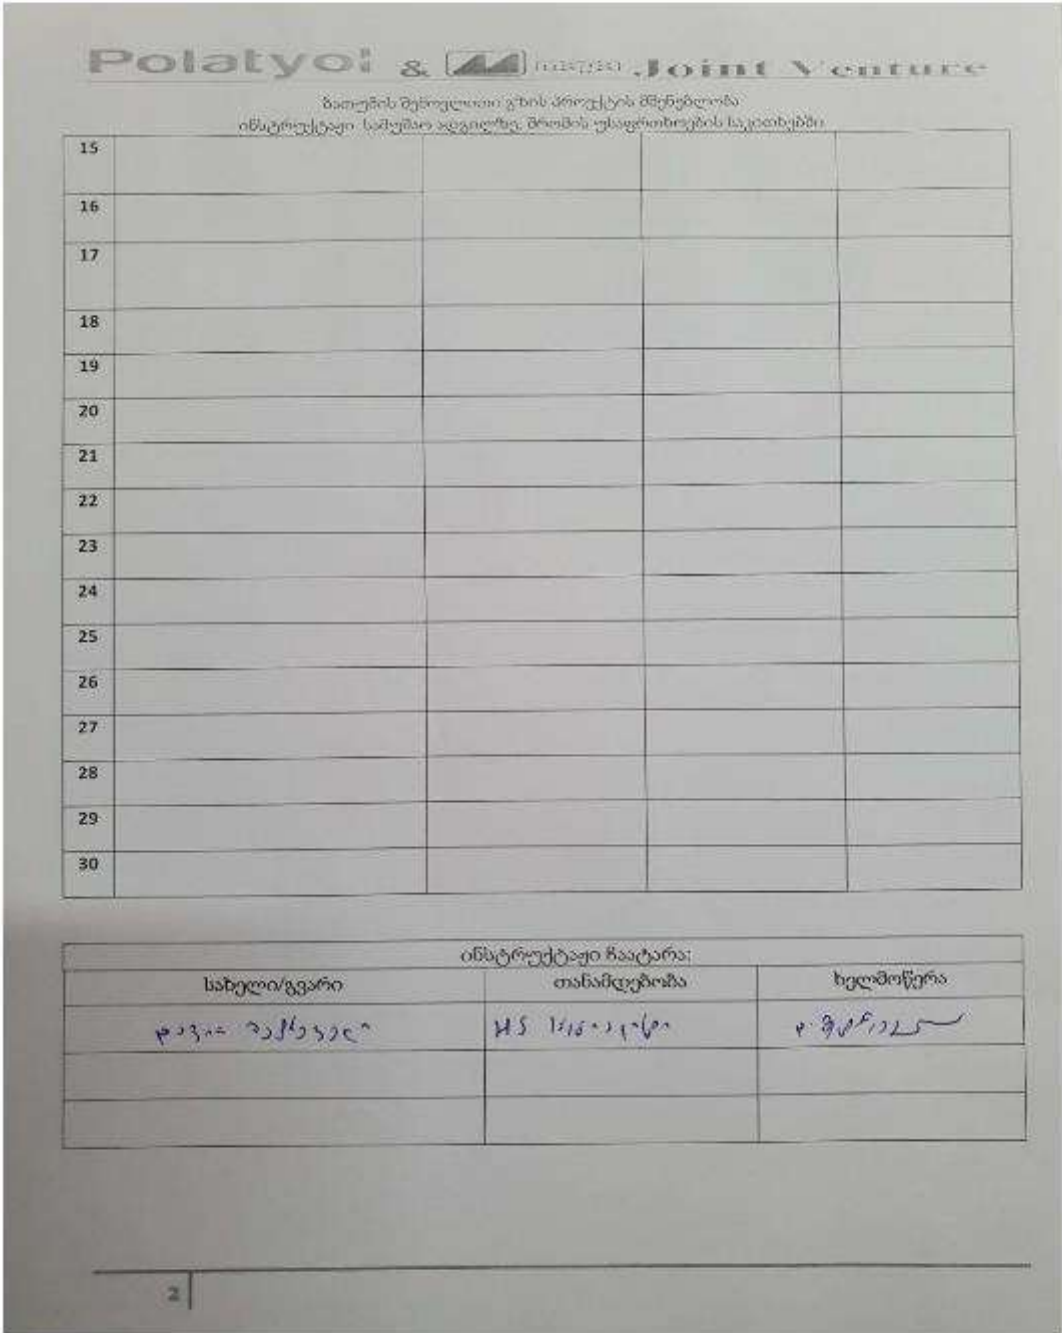 Polatyol & Joint Venture
ბათუმის შემოვლითი გზის პროექტის მშენებლობა
ინსტრუქტაჟი სამუშაო ადგილზე, შრომის უსაფრთხოების საკითხებში
15
16
17
18
19
20
21
22
23
24
25
26
27
28
29
30
ინსტრუქტაჟი ჩაატარა:
სახელი/გვარი თანამდებობა ხელმოწერა
დავით
2